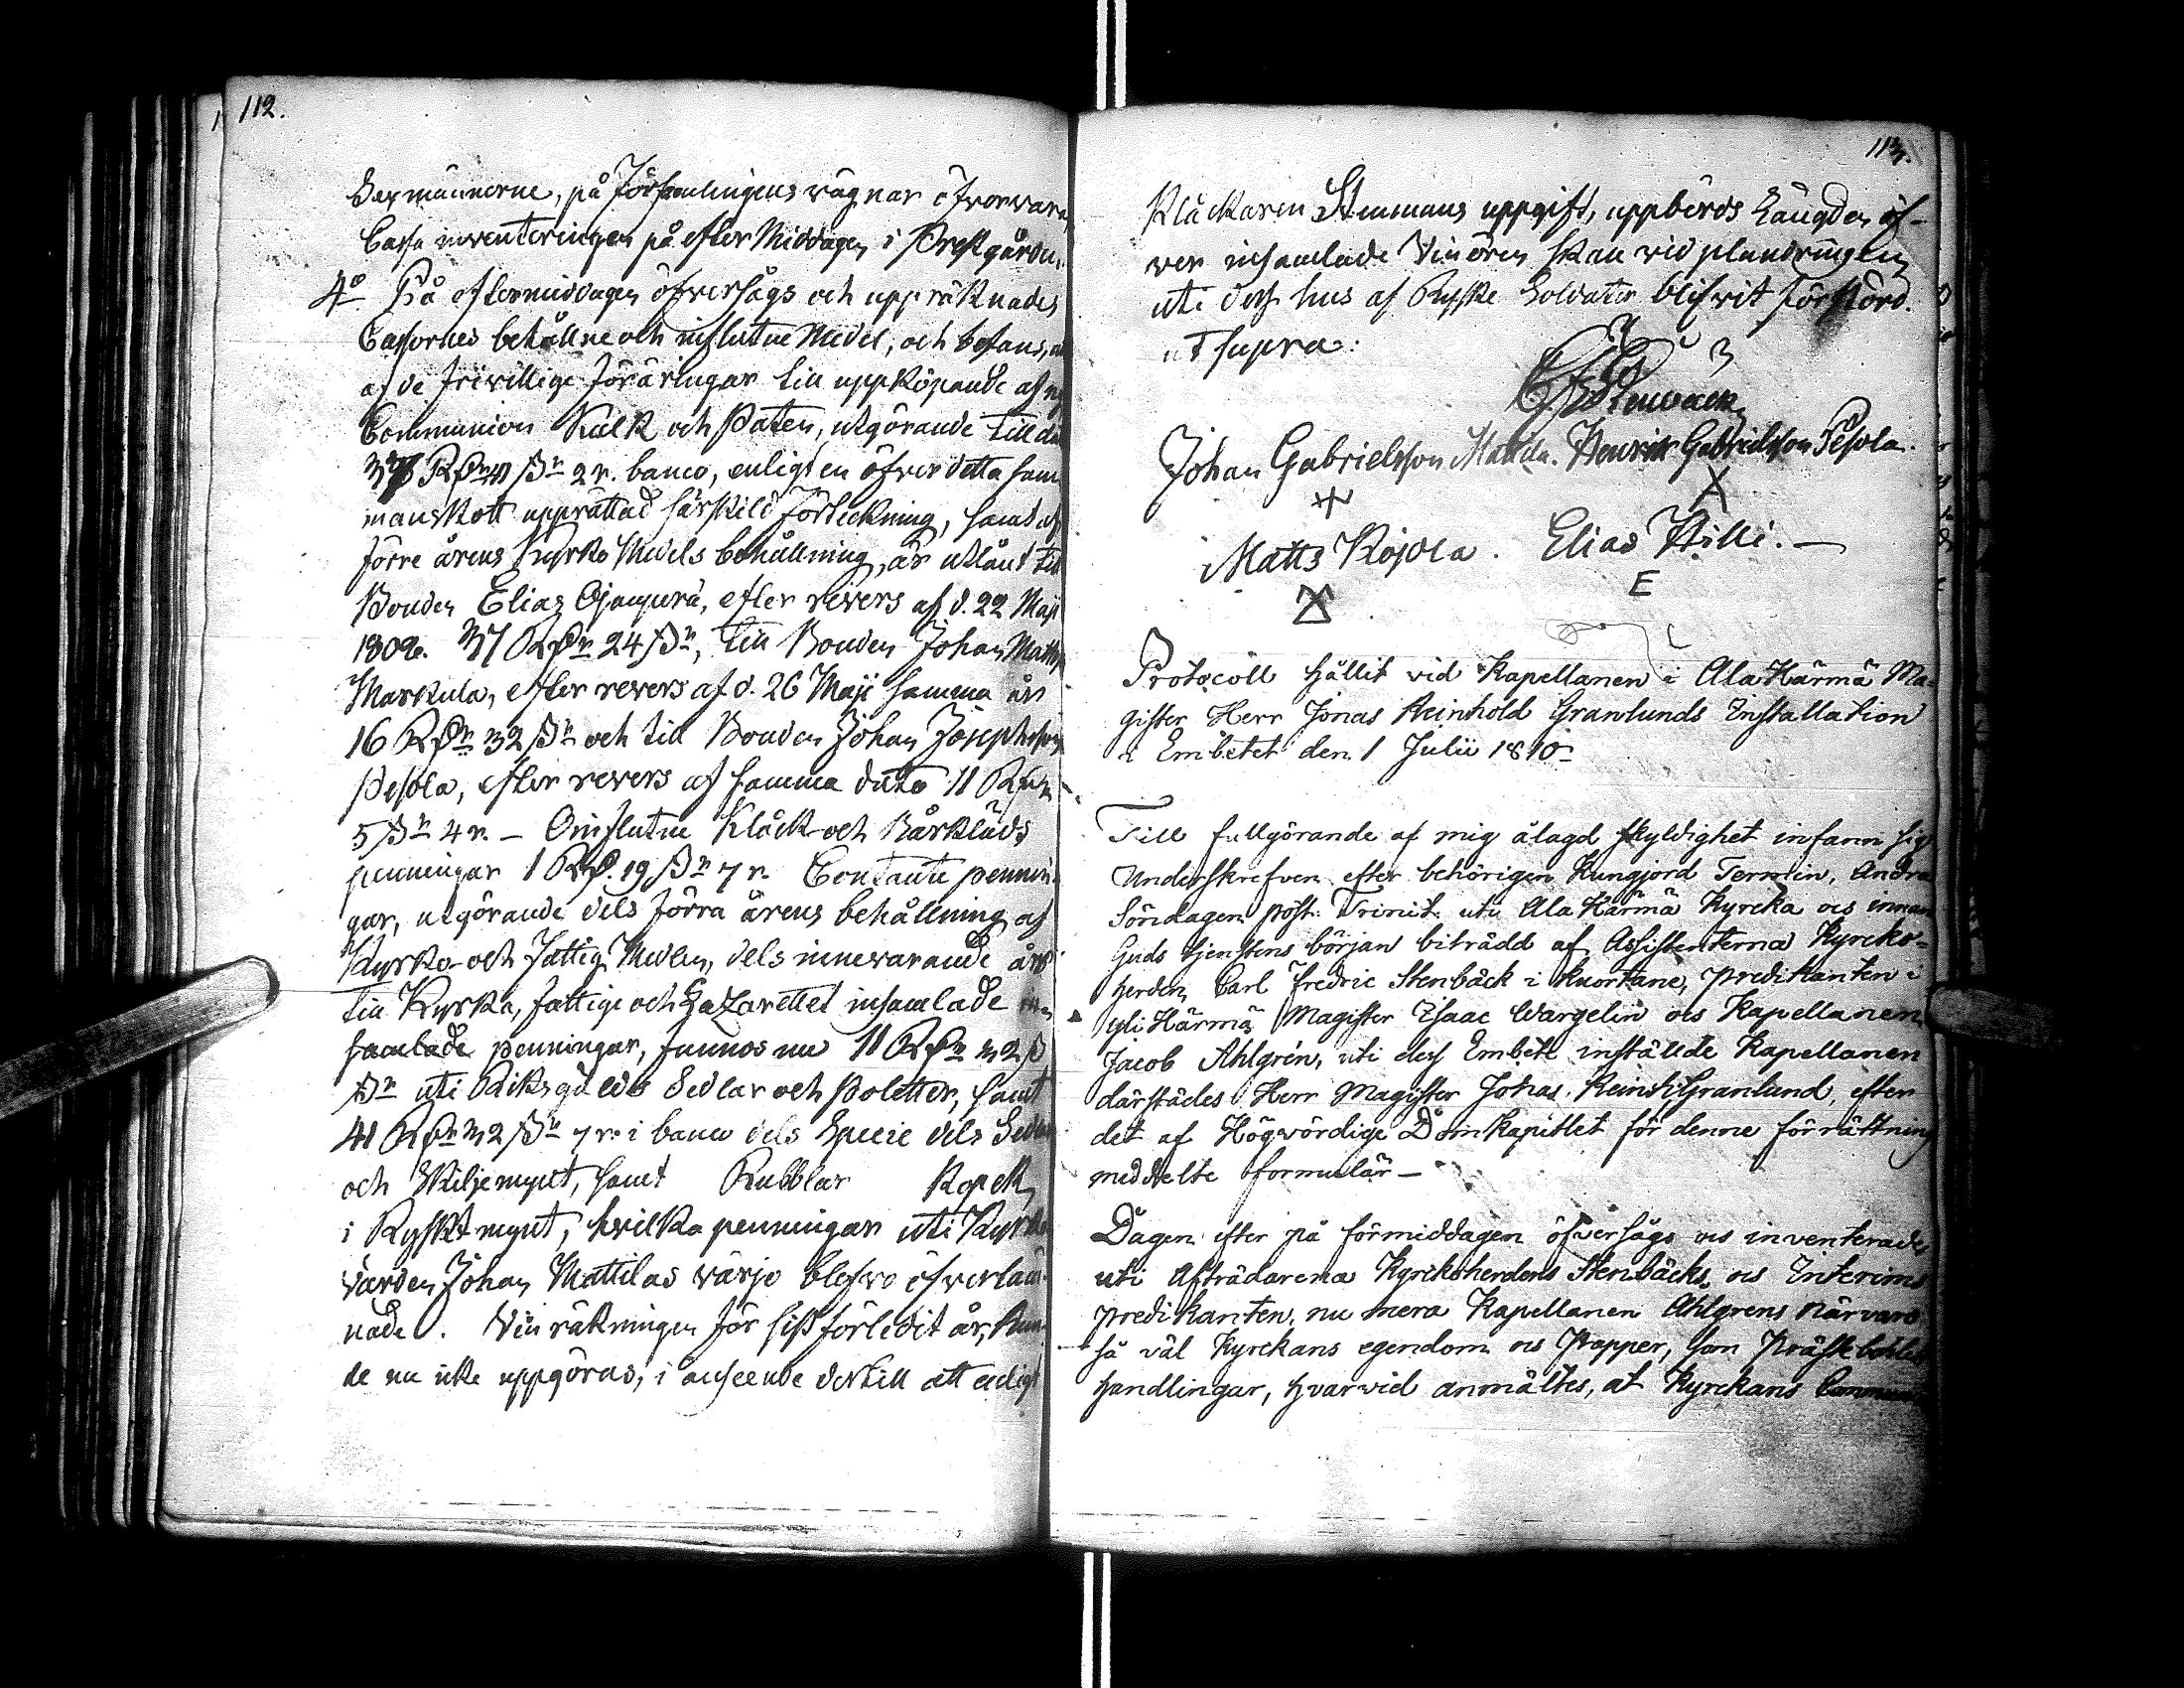 112.
Sexmännerne, på Församlingens vägnar öfvervara
Cassa inventeringen på efter Middagen i Prestgården.
4o På eftermiddagen öfversågs och uppräknades
Cassornes behållne och influtne Medel, och befans, at
af de frivillige föräringar till uppköpande af ny
Communion Kalk och Paten, utgörande till
RPr 2 r. banco, enligt en öfver detta sam-
manskott upprättad särskild förteckning, samt af
förre årens Kyrko Medels behållning, är utlånt till
Bonden Elias Ojanperä, efter revers af d. 22 Maji
1809. 37 RDr 24 ßr, till Bonden Johan Matts
Markula, efter revers af d. 26 Maji samma år
16 RDr 32 ßr och till Bonden Johan Josephsson
Pesola, efter revers af samma dato 11 RDr
5 ßr 4 r. – Oinflutne Klåck- och Bårkläds
penningar 1 RD. 19 ßr 7 r. Contante pennin-
gar, utgörande dels förra årens behållning af
Kyrko- och Fattig Medlen, dels innevarande års
till Kyrka, fattige och Lazarettet insamlade in-
samlade penningar, funnos nu 11 RDr 32 ß
ßr uti Riksgälds Sedlar och Poletter, samt
41 RDr 32 ßr 7 r. i banco dels Specie dels Sedlar
och Skiljemynt, samt Rubblar Kopek
i Ryskt mynt, hvilka penningar uti Kyrko
Värden Johan Mattilas värjo blefvo öfverläm-
nade. Vin räkningen för sist förledit år, kun-
de nu icke uppgöras, i anseende dertill att enligt
113.
Klåckaren Stenmans uppgift, uppbörds Längden öf-
ver insamlade Vinören skan vid plundringen
uti dess hus af Ryske Soldater blifvit förstörd.
ut supra:
CF Stenbäck
Johan Gabrielsson Mattila. Henrik Gabrielsson Pesola.
X
Matts Kojola. Elias Killi. –
E
Protocoll hållit vid Kapellanen i Ala Härmä Ma-
gister Herr Jonas Reinhold Granlunds Installation
i Embetet den 1 Julii 1810
Till fullgörande af mig ålagd skyldighet infann sig
Underskrefven efter behörigen Kungjord Termin, Andra
Söndagen post: Trinit: uti Ala Härmä Kyrcka os innan
Guds tjenstens början biträdd af Assistenterna Kyrcko-
herden Carl Fredric Stenbäck i Kuortane, predikanten i
Yli Härmä Magister Isaac Wargelin os Kapellanen
Jacob Ahlgrén, uti dess Embete inställde Kapellanen
därstädes Herr Magister Johas Reinh: Granlund, efter
det af Högvördige Domkapitlet för denne förrättning
meddelte formulär –
Dagen efter på förmiddagen öfversågs os inventerades
uti Afträdarena Kyrckoherdens Stenbäcks, os Interims
predikanten, nu mera Kapellanen Ahlgrens närvaro
så väl Kyrckans egendom os Papper, som Präste bohls
handlingar, hvarvid anmältes, at Kyrckans